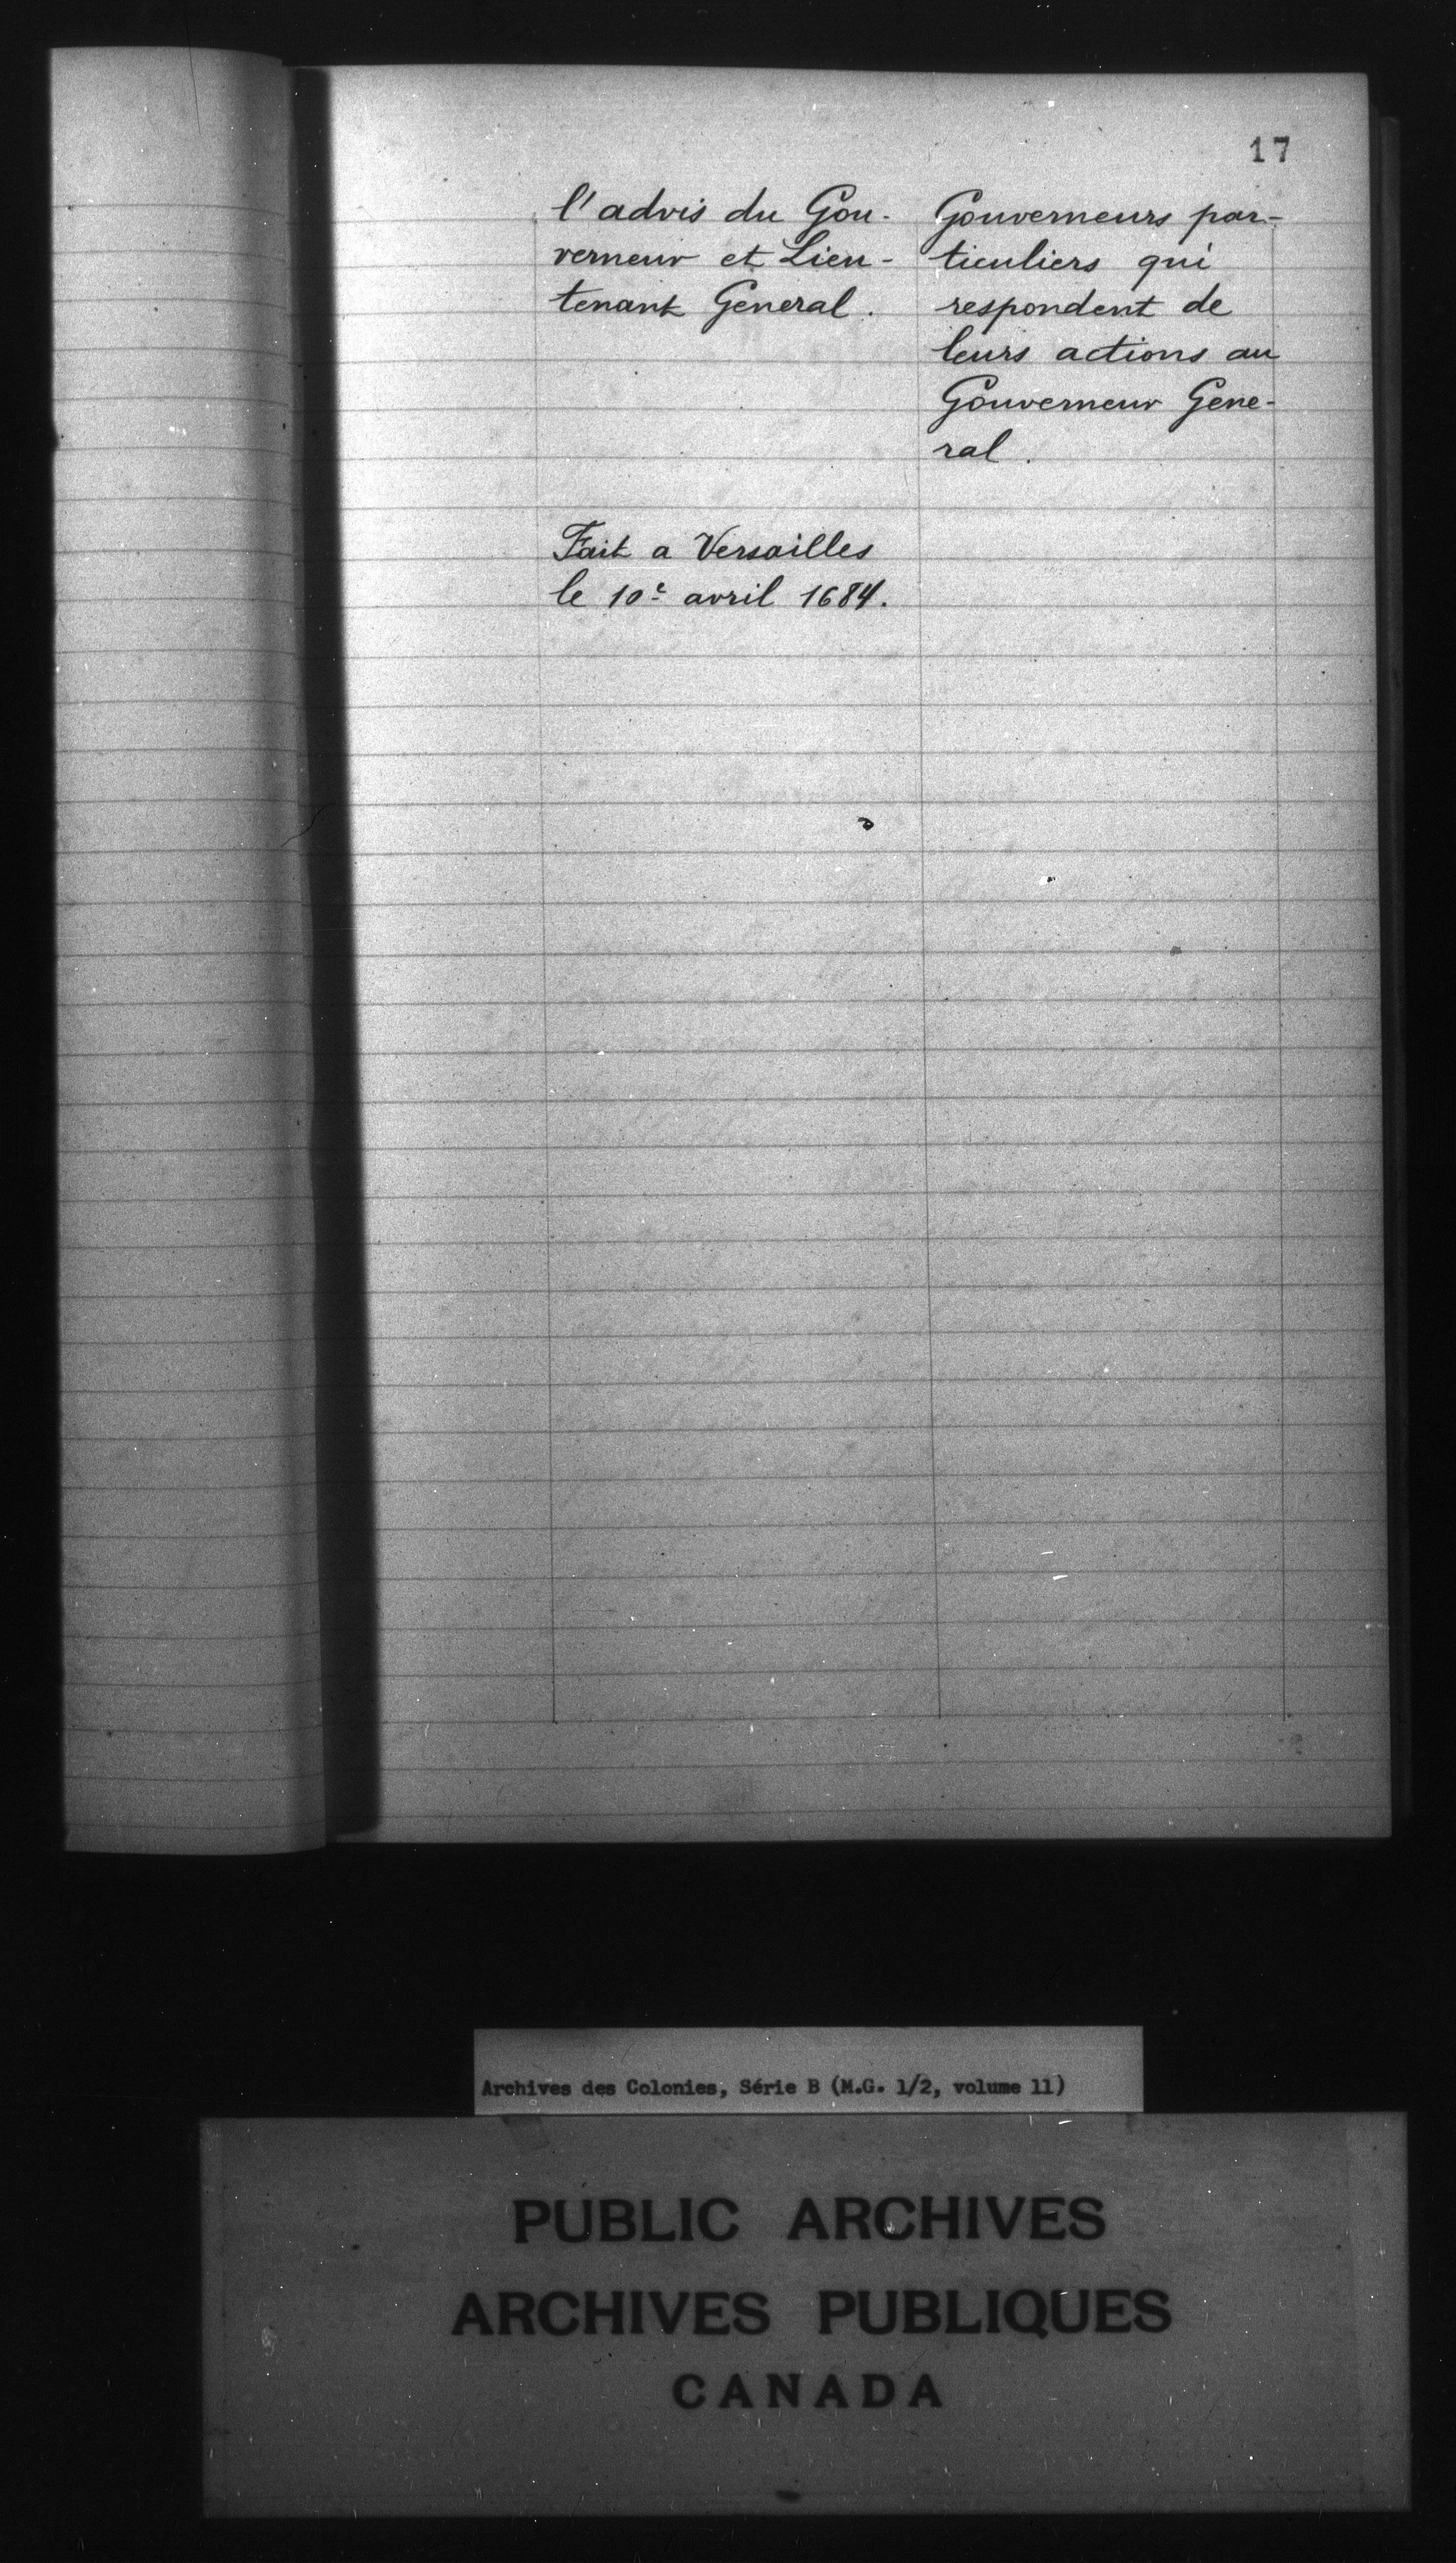 17
l'advis du Gou-
verneur et Lieu-
tenant General.
Gouverneurs par-
ticuliers qui
respondent de
leurs actions au
Gouverneur Gene-
ral.
Fait a Versailles
le 10e avril 1684.
Archives des Colonies, Série B (M.G. 1/2, volume 11)
PUBLIC ARCHIVES
ARCHIVES PUBLIQUES
CANADA